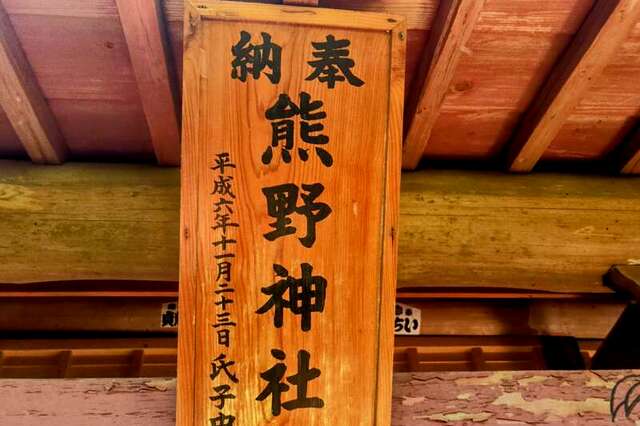 奉納
熊野神社
平成六年十一月二十三日氏子中
ちい